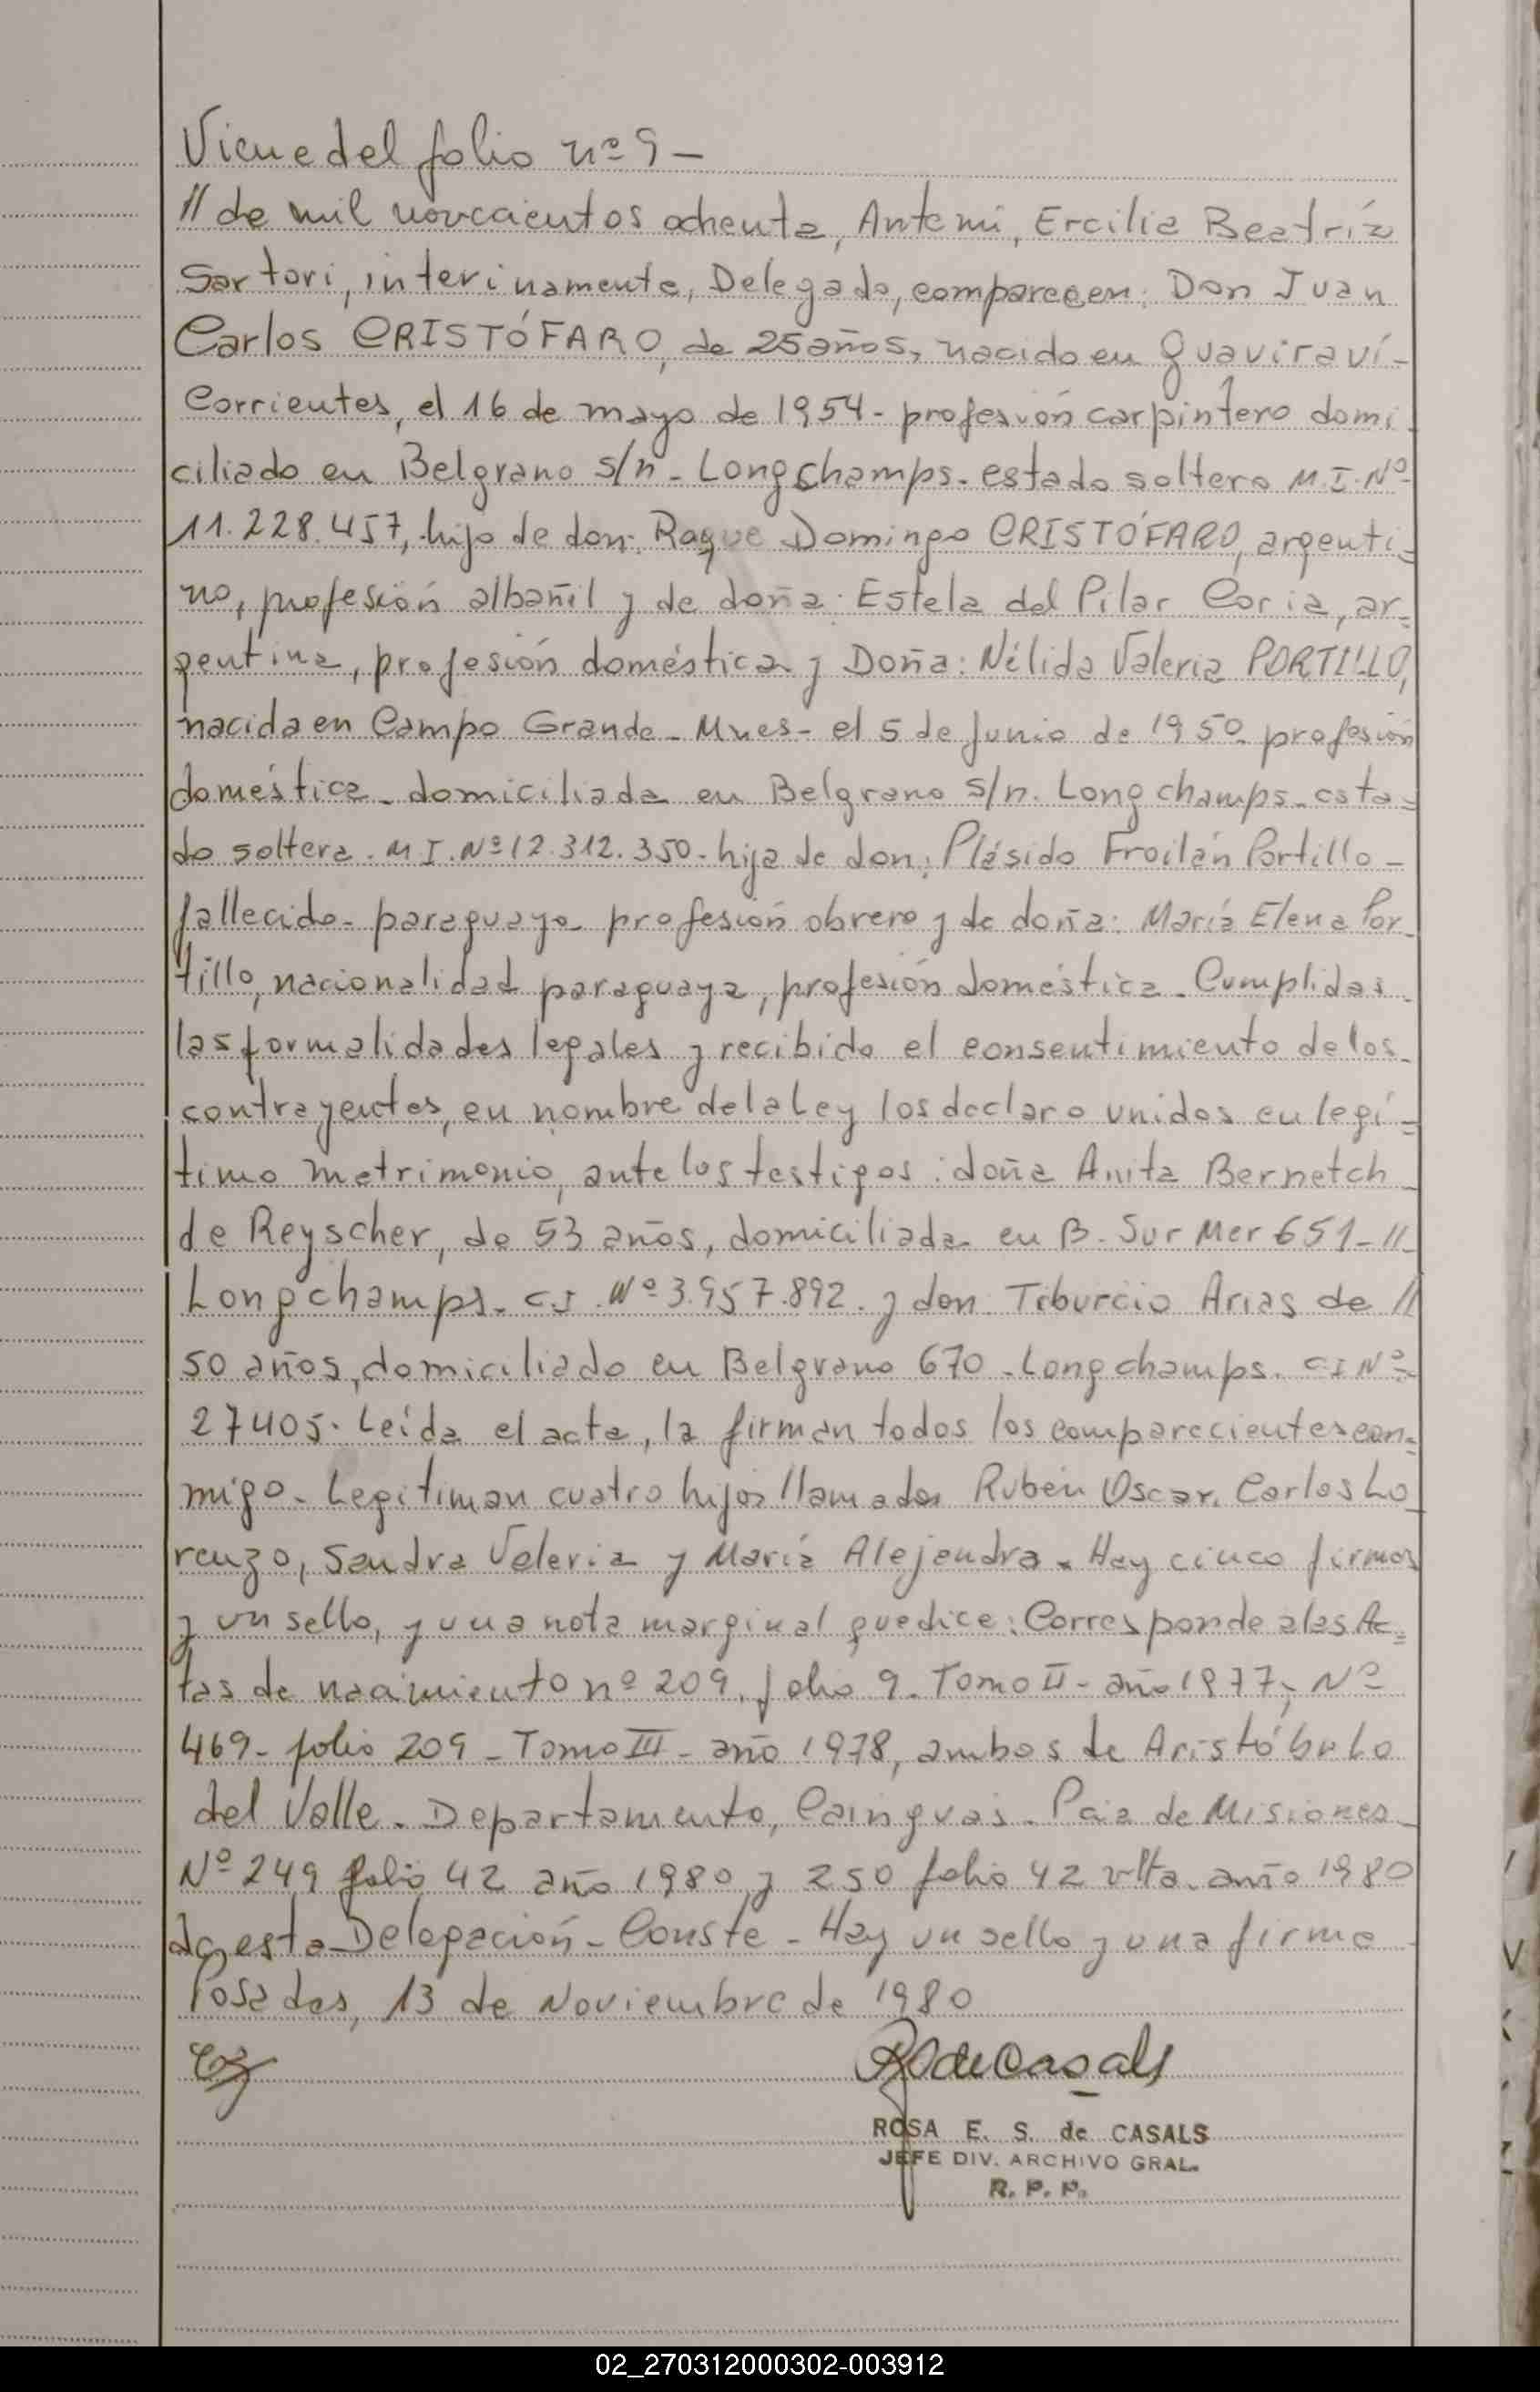 Viene del folio nº 9 -
// de mil novecientos ochenta, Ante mi, Ercilia Beatríz
Sartori, interinamente, Delegado, comparecen: Don Juan
Carlos CRISTÓFARO, de 25 años, nacido en Guaviraví-
Corrientes, el 16 de mayo de 1954 - profesión carpintero domi
ciliado en Belgrano s/n - Longchamps. estado soltero M.I. Nº
11.228.457, hijo de don: Roque Domingo CRISTÓFARO, argenti=
no, profesión albañil y de doña: Estela del Pilar Coria, ar=
gentina, profesión doméstica y Doña: Nélida Valeria PORTILLO,
nacida en Campo Grande - Mnes - el 5 de Junio de 1950. profesión
doméstica - domiciliada en Belgrano s/n. Longchamps - esta=
do soltera. M I. Nº 12.312.350 - hija de don: Plásido Froilán Portillo -
fallecido - paraguayo profesión obrero y de doña: María Elena Por-
tillo, nacionalidad paraguaya, profesión doméstica. Cumplidas
las formalidades legales y recibido el consentimiento de los
contrayentes, en nombre de la Ley los declaro unidos en legí=
timo matrimonio, ante los testigos: doña Anita Bernetch
de Reyscher, de 53 años, domiciliada en B. Sur Mer 651 - //
Longchamps. C.I. Nº 3.957.892. y don Tiburcio Arias de //
50 años, domiciliado en Belgrano 670 - Longchamps. C I Nº
27405. Leída el acta, la firman todos los comparecientes con=
migo. Legitiman cuatro hijos llamados Rubén Oscar, Carlos Lo
renzo, Sandra Valeria y María Alejandra. Hay cinco firmas
y un sello, y una nota marginal que dice: Corresponde a las Ac=
tas de nacimiento nº 209, folio 9. Tomo II - año 1977, Nº
469 - folio 209 - Tomo III - año 1978, ambos de Aristóbulo
del Valle. Departamento, Cainguás. Pcia de Misiones
Nº 249 folio 42 año 1980 y 250 folio 42 vlta. año 1980
de esta Delegación - Conste - Hay un sello y una firma
Posadas, 13 de Noviembre de 1980
de Casals
ROSA E. S. de CASALS
JEFE DIV. ARCHIVO GRAL.
R. P. P.
02_270312000302-003912